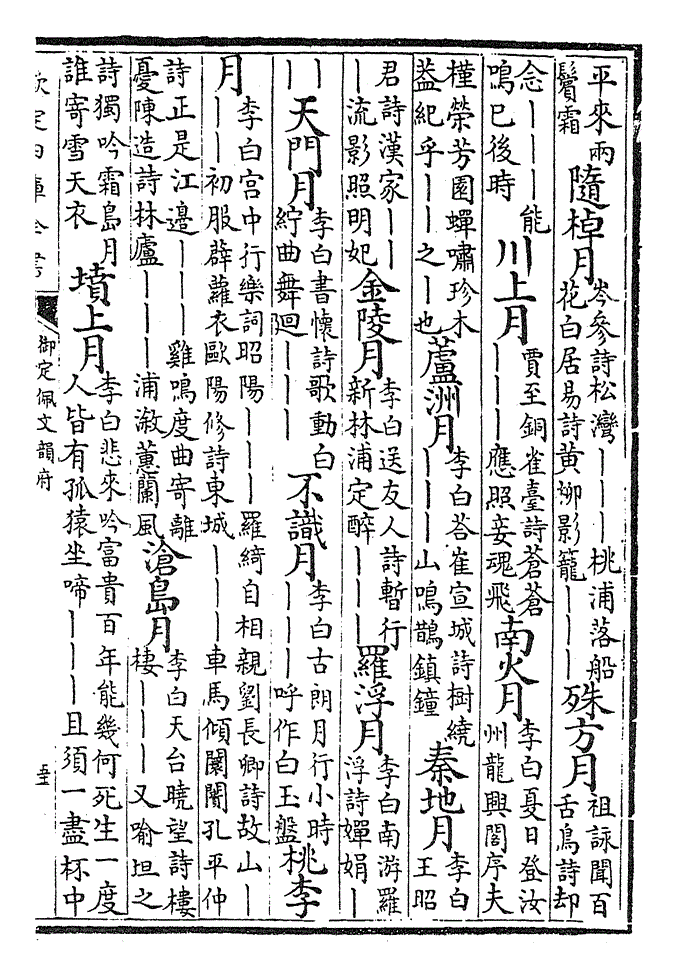 平來兩鬢霜 隨棹月 岑參詩松灣｜｜｜桃浦落船花白居易詩黄栁影籠｜｜｜ 殊方月 祖詠聞百舌鳥詩却
念｜｜｜能鳴巳後時 川上月 賈至銅雀臺詩蒼蒼｜｜｜應照妾魂飛 南火月 李白夏日登汝州龍興閣序夫
槿榮芳園蟬嘯珍木葢紀乎｜｜之｜也 蘆洲月 李白荅崔宣城詩樹繞｜｜｜山鳴鵲鎮鐘 秦地月 李白王昭
君詩漢家｜｜｜流影照明妃 金陵月 李白送友人詩暫行新林浦定醉｜｜｜ 羅浮月 李白南游羅浮詩嬋娟｜
｜｜ 天門月 李白書懷詩歌動白紵曲舞廻｜｜｜ 不識月 李白古朗月行小時｜｜｜呼作白玉盤 桃李
月 李白宫中行樂詞昭陽｜｜｜羅綺自相親劉長卿詩故山｜｜｜初服薜蘿衣歐陽修詩東城｜｜｜車馬傾闤闠孔平仲
詩正是江邊｜｜｜雞鳴度曲寄離憂陳造詩林廬｜｜｜浦漵蕙蘭風 滄島月 李白天台曉望詩樓棲｜｜｜又喻坦之
詩獨吟霜島月誰寄雪天衣 墳上月 李白悲來吟富貴百年能幾何死生一度人皆有孤猿坐啼｜｜｜且須一盡杯中
欽定四庫全書
御定佩文韻府